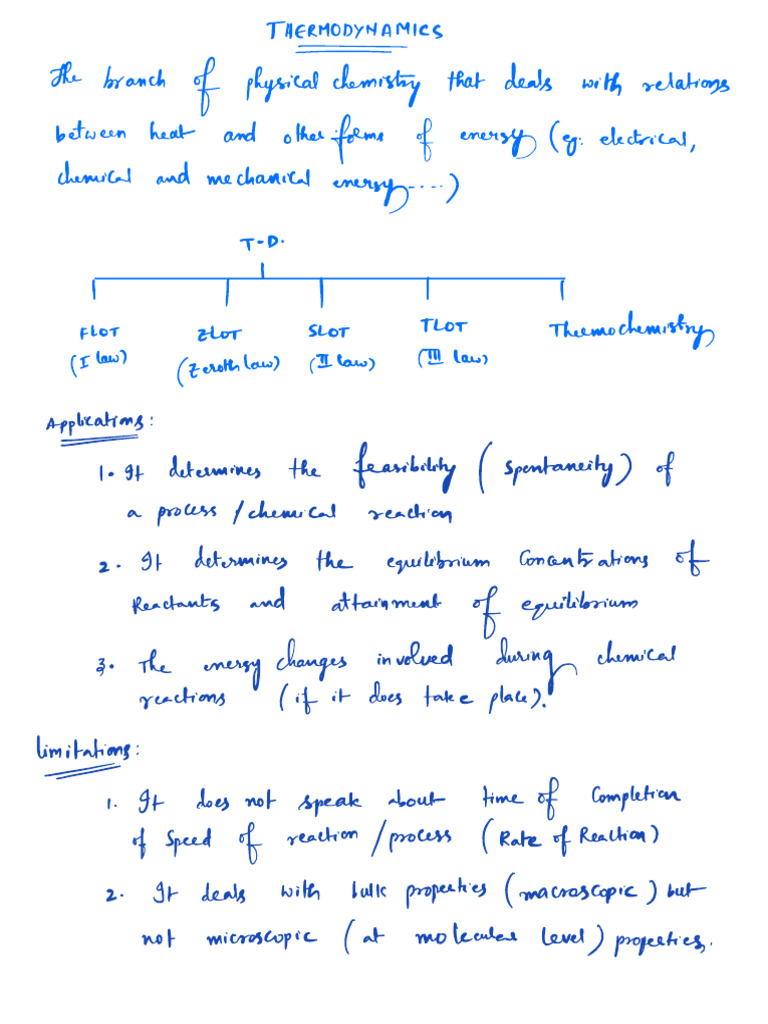 THERMODYNAMICS
The branch of physical chemistry that deals with relations
between heat and other forms of energy (eg: electrical,
chemical and mechanical energy....)
T-D.
FLOT ZLOT SLOT TLOT Thermochemistry
(I law) (Zeroth law) (II law) (III law)
Applications:
1. It determines the feasibility (spontaneity) of
a process/chemical reaction
2. It determines the equilibrium concentrations of
Reactants and attainment of equilibrium
3. The energy changes involved during chemical
reactions (if it does take place).
limitations:
1. It does not speak about time of Completion
of Speed of reaction/process (Rate of Reaction)
2. It deals with bulk properties (macroscopic) but
not microscopic (at molecular level) properties.